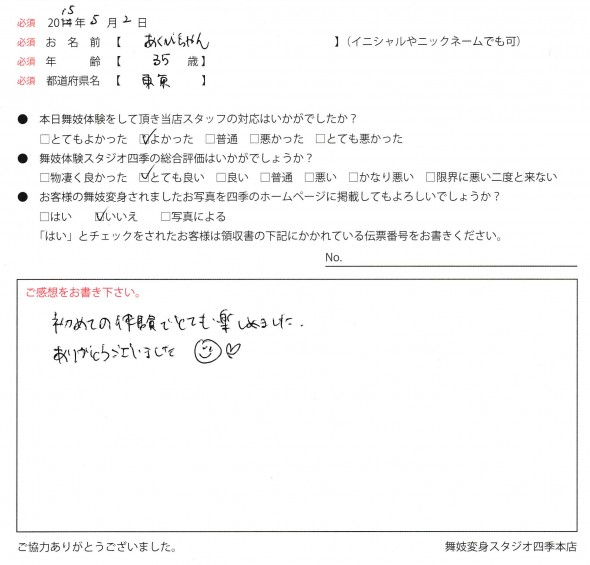 必須 2015年5月2日
必須 お名前【 あくびちゃん 】(イニシャルやニックネームでも可)
必須 年齢【 35 歳】
必須 都道府県名【 東京 】
● 本日舞妓体験をして頂き当店スタッフの対応はいかがでしたか?
□とてもよかった ☑よかった □普通 □悪かった □とても悪かった
● 舞妓体験スタジオ四季の総合評価はいかがでしょうか?
□物凄く良かった ☑とても良い □良い □普通 □悪い □かなり悪い □限界に悪い二度と来ない
● お客様の舞妓変身されましたお写真を四季のホームページに掲載してもよろしいでしょうか?
□はい ☑いいえ □写真による
「はい」とチェックをされたお客様は領収書の下記にかかれている伝票番号をお書きください。
No.
ご感想をお書き下さい。
初めての体験でとても楽しめました.
ありがとうございました
ご協力ありがとうございました。 舞妓変身スタジオ四季本店